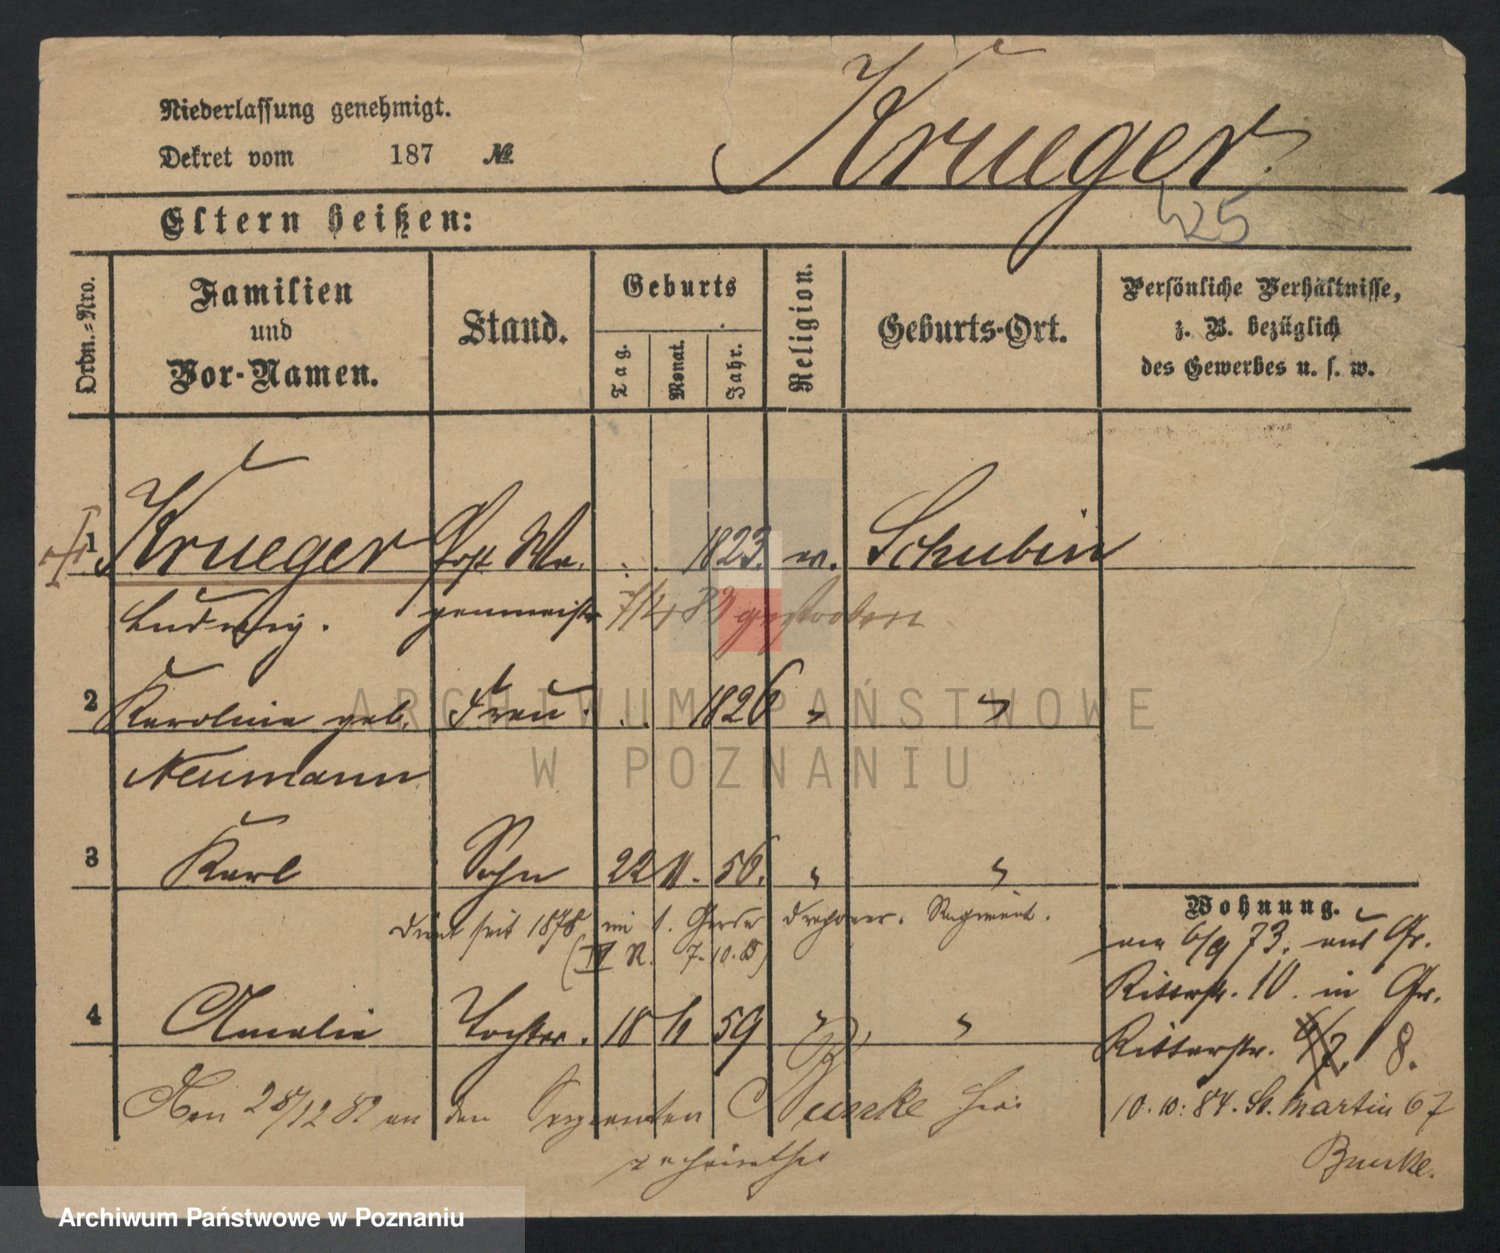 Niederlassung genehmigt.
Dekret vom 187 №
Krueger.
425
Eltern heißen:
Ordn.-Nro.
Familien und Vor-Namen.
Stand.
Geburts
Tag.
Monat.
Jahr.
Religion.
Geburts-Ort.
Persönliche Verhältnisse,
z. B. bezüglich
des Gewerbes u. s. w.
1 Krueger Post Wa- . . 1823. ev. Schubin
Ludwig. genmeister 7/4 83 gestorben
2 Karoline geb. Frau . . . 1826 " "
Neumann
3 Karl Sohn 22 11. 56. " "
dient seit 1878 im 1. Garde Dragoner. Regiment.
Wohnung.
am 6/9 73. aus Gr.
Ritterstr. 10. in Gr.
Ritterstr. 8.
4 Amalie Tochter. 18 59 " "
Den 28/12 82 an den hier
10. 10. 84. St. Martin 67
ARCHIWUM PAŃSTWOWE
W POZNANIU
Archiwum Państwowe w Poznaniu